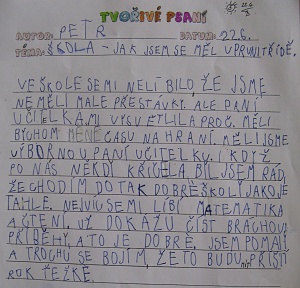 TVOŘIVÉ PSANÍ
AUTOR: PETR DATUM: 22.6.
TÉMA: ŠKOLA - JAK JSEM SE MĚL V PRVNÍ TŘÍDĚ.
VE ŠKOLE SE MI NELÍBILO, ŽE JSME
NEMĚLI MALÉ PŘESTÁVKY. ALE PANÍ
UČITELKA MI VYSVĚTLILA PROČ. MĚLI
BYCHOM MÉNĚ ČASU NA HRANÍ. MĚLI JSME
VÝBORNOU PANÍ UČITELKU. I KDYŽ
PO NÁS NĚKDY KŘIČELA BYL JSEM RÁD,
ŽE CHODÍM DO TAK DOBRÉ ŠKOLY JAKO JE
TAHLE. NEJVÍC SE MI LÍBÍ MATEMATIKA
A ČTENÍ. UŽ DOKÁŽU ČÍST BRÁCHOVI
PŘÍBĚHY, A TO JE DOBRÉ. JSEM POMALÝ
A TROCHU SE BOJÍM, ŽE TO BUDU MÍT PŘÍŠTÍ
ROK TĚŽKÉ.